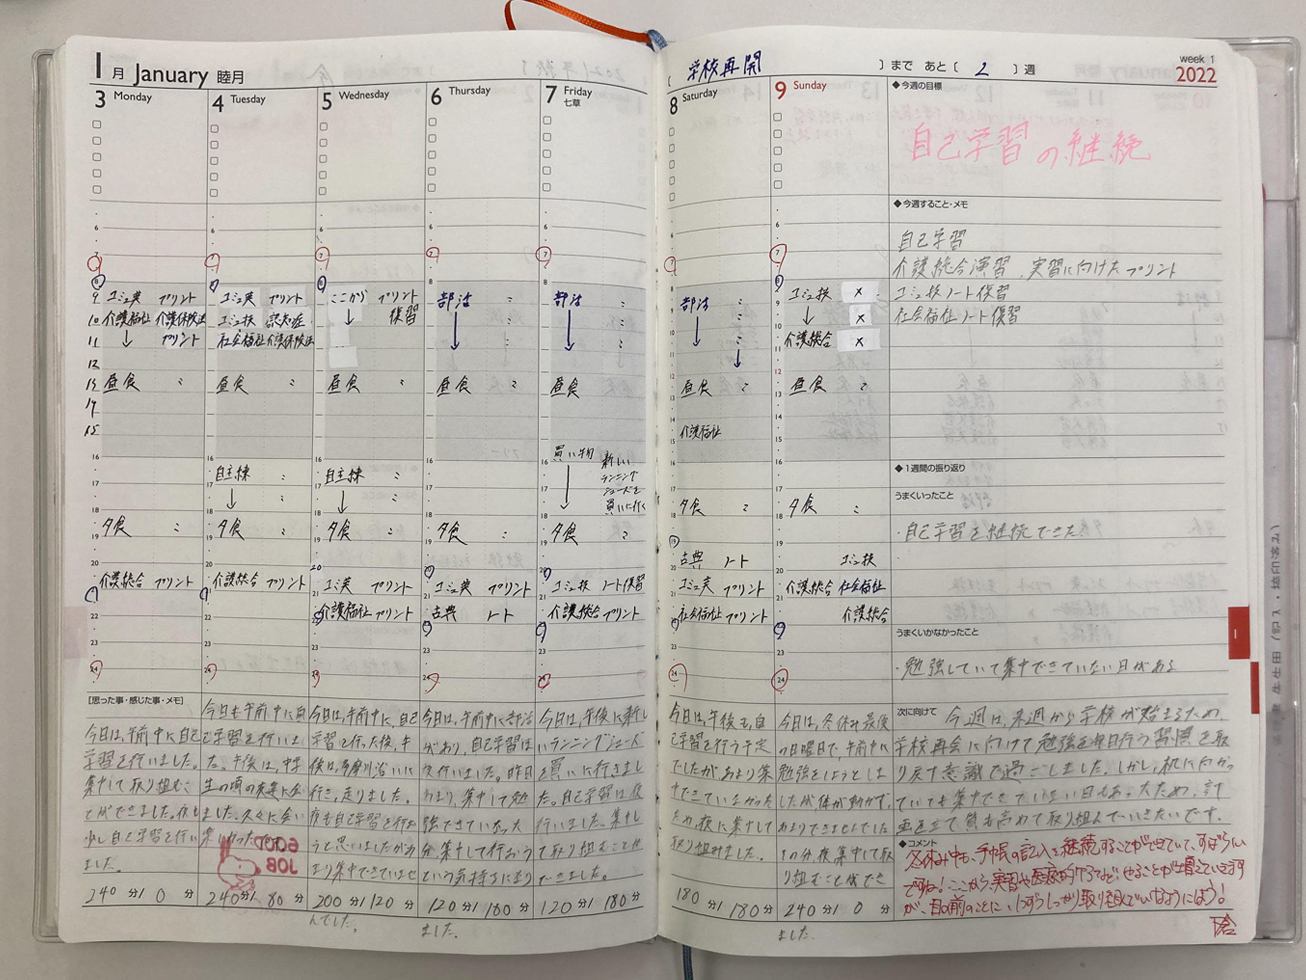 1月 January 睦月
3 Monday
4 Tuesday
5 Wednesday
6 Thursday
7 Friday
七草
9 コミュ英 プリント
10 介護福祉 介護保険法
11 ↓ プリント
12
13 昼食 〃
14
15
夕食 〃
介護総合 プリント
コミュ英 プリント
コミュ技 認知症
社会福祉 介護保険法
昼食 〃
自主練 〃
↓ 〃
夕食 〃
介護総合 プリント
ここから プリント
↓ 復習
昼食 〃
自主練 〃
↓ 〃
夕食 〃
コミュ英 プリント
介護福祉 プリント
部活 〃
昼食 〃
夕食 〃
コミュ英 プリント
古典 ノート
部活 〃
昼食
買い物 新しい
ランニング
シューズを
買いに行く
夕食 〃
コミュ技 ノート復習
介護総合 プリント
[思った事・感じた事・メモ]
今日は、午前中に自己
学習を行いました。
集中して取り組むこ
とができました。夜も
少し自己学習を行い
ました。
240分 / 0分
今日も午前中に自
己学習を行いまし
た。午後は、中学
生の頃の友達に会い
ました。久々に会い
楽しかったです。
GOOD
JOB
240分 / 80分
今日は、午前中に、自己
学習を行った後、午
後は、多摩川沿いに
行き、走りました。
夜も自己学習を行お
うと思いましたがあ
まり集中できていませ
んでした。
200分 / 120分
今日は、午前中に部活
があり、自己学習は
夜行いました。昨日
あまり、集中して勉
強できていなかった
分、集中して行おう
という気持ちになり
ました。
120分 / 180分
今日は、午後に新し
いランニングシューズ
を買いに行きまし
た。自己学習は夜
行いました。集中し
て取り組むことが
できました。
120分 / 180分
[学校再開]まで あと[2]週
week 1
2022
8 Saturday
9 Sunday
部活 〃
昼食 〃
介護福祉
夕食 〃
古典 ノート
コミュ英 プリント
社会福祉 プリント
コミュ技 ×
↓ ×
介護総合 ×
昼食 〃
夕食 〃
コミュ技
介護総合 社会福祉
介護総合
今日は、午後も、自
己学習を行う予定
でしたが、あまり集
中できていなかった
ため、夜に集中して
取り組みました。
180分 / 180分
今日は、冬休み最後
の日曜日で、午前中に
勉強をしようとしま
したが、体が動かず、
あまりできませんでした。
その分、夜集中して取
り組むことができ
ました。
240分 / 0分
◆今週の目標
自己学習の継続
◆今週すること・メモ
自己学習
介護総合演習、実習に向けたプリント
コミュ技ノート復習
社会福祉ノート復習
◆1週間の振り返り
うまくいったこと
・自己学習を継続できた
うまくいかなかったこと
・勉強していて集中できていない日がある
次に向けて
今週は、来週から学校が始まるため、
学校再会に向けて勉強を毎日行う習慣を取
り戻す意識で過ごしました。しかし、机に向かっ
ていても集中できていない日もあったため、計
画を立て質も高めて取り組んでいきたいです。
◆コメント
冬休み中も、手帳の記入を継続することができていて、すばらしい
ですね!ここから実習や医療的ケアなど、やることが増えていきます
が、目の前のことに、1つずつしっかり取り組んでいけるようにしよう!
1